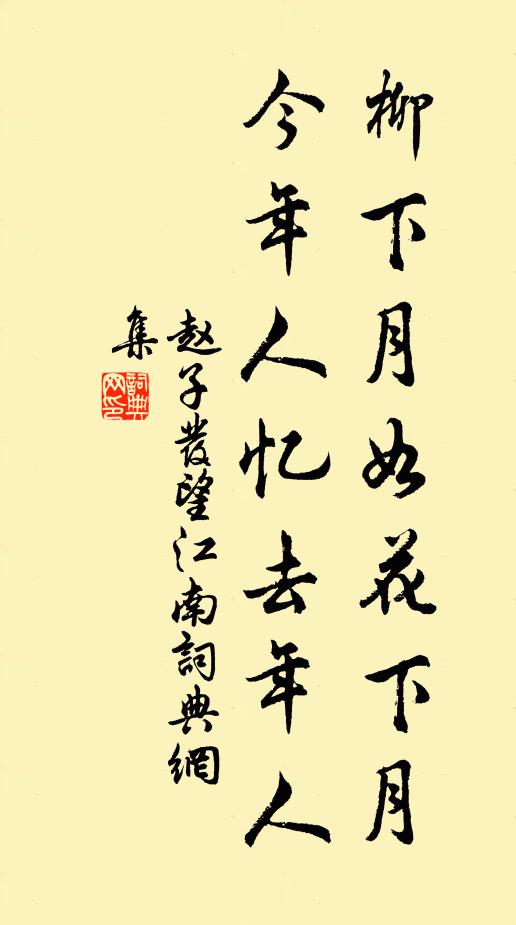 柳下月如花下月
今年人忆去年人
赵子發望江南詞典網
集
詞典
网印